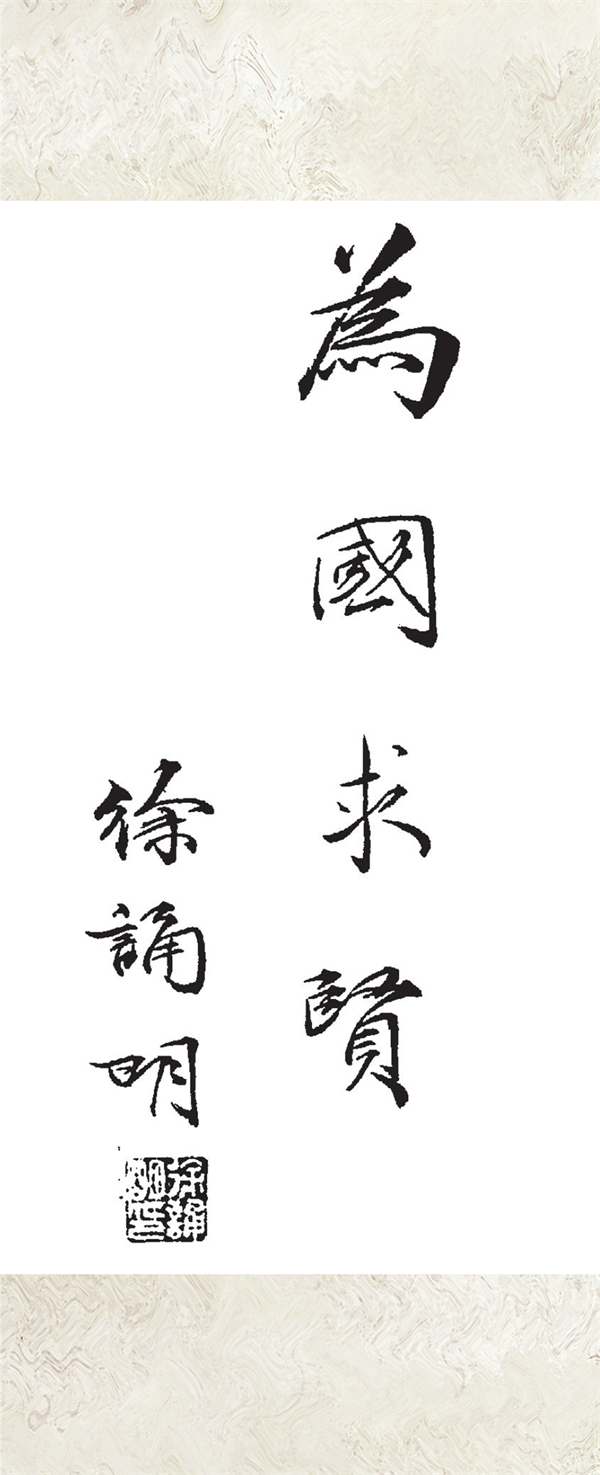 為國求賢
徐誦明
徐誦明印